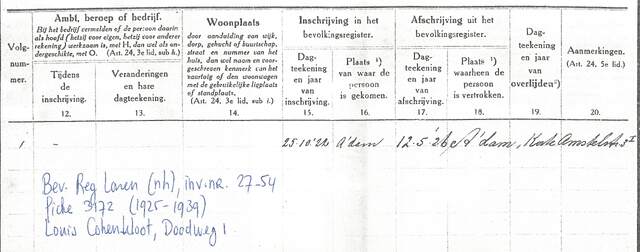 Volg-
num-
mer.
Ambt, beroep of bedrijf.
Bij het bedrijf vermelden of de persoon daarin
als hoofd (hetzij voor eigen, hetzij voor andere
rekening) werkzaam is, met H, dan wel als on-
dergeschikte, met O. (Art. 24, 3e lid, sub h.)
Tijdens
de
inschrijving.
12.
Veranderingen
en hare
dagteekening.
13.
Woonplaats
door aanduiding van wijk,
dorp, gehucht of buurtschap,
straat en nummer van het
huis, dan wel naam en voor-
geschreven kenmerk van het
vaartuig of den woonwagen
met de gebruikelijke ligplaats
of standplaats.
(Art. 24, 3e lid, sub i.)
14.
Inschrijving in het
bevolkingsregister.
Dag-
teekening
en jaar
van
inschrijving.
15.
Plaats ¹)
van waar de
persoon
is gekomen.
16.
Afschrijving uit het
bevolkingsregister.
Dag-
teekening
en jaar
van
afschrijving.
17.
Plaats ¹)
waarheen de
persoon
is vertrokken.
18.
Dag-
teekening
en jaar
van
overlijden²)
19.
Aanmerkingen.
(Art. 24, 5e lid.)
20.
1 – 25.10.'22 A'dam 12.5.'26 A'dam, Korte Amstelstr 3 I
Bev. Reg Laren (nh), inv.nr. 27-54
fiche 3172 (1925-1939)
Louis Cohenkloot, Doodweg 1